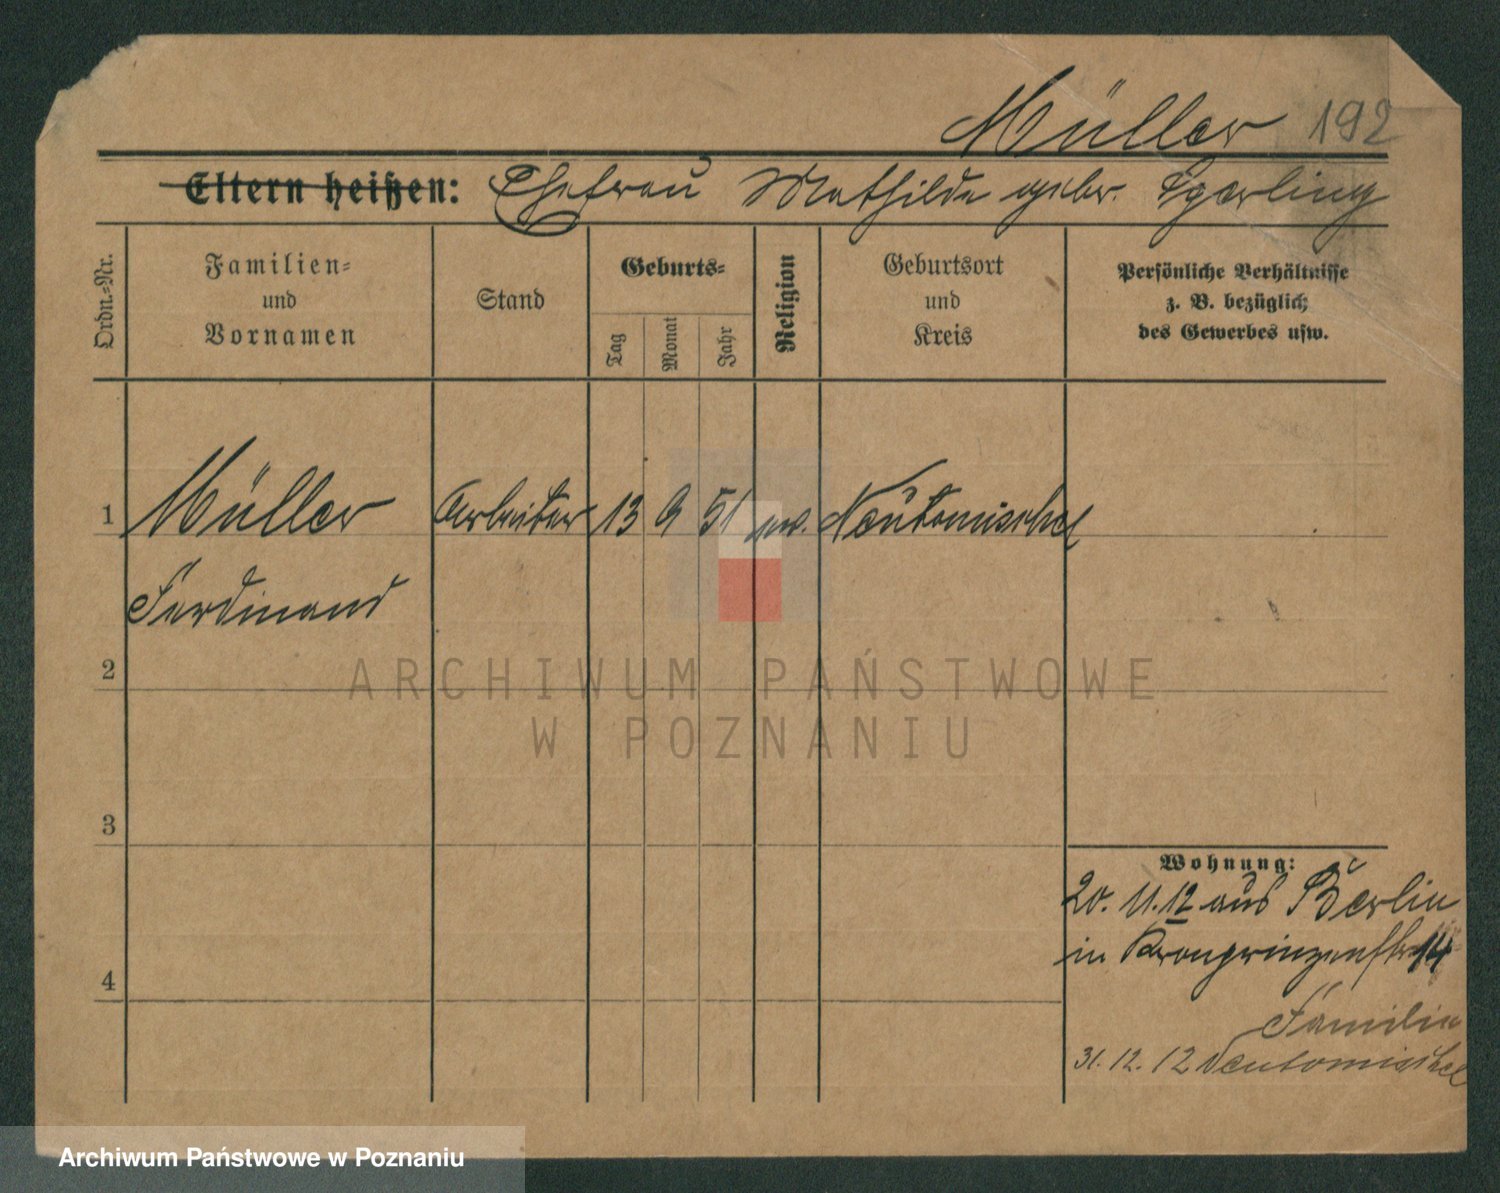 Müller 192
Eltern heißen: Ehefrau Mathilde gebr.
Ordn.-Nr.
Familien-
und
Vornamen
Stand
Geburts-
Tag
Monat
Jahr
Religion
Geburtsort
und
Kreis
Persönliche Verhältnisse
z. B. bezüglich
des Gewerbes usw.
1 Müller Arbeiter 13 9 51 ev. Neutomischel
Ferdinand
2
3
4
Wohnung:
20. 11. 12 aus Berlin
in Kronprinzenstr 14
Familie
31. 12. 12 Neutomischel
ARCHIWUM PAŃSTWOWE
W POZNANIU
Archiwum Państwowe w Poznaniu